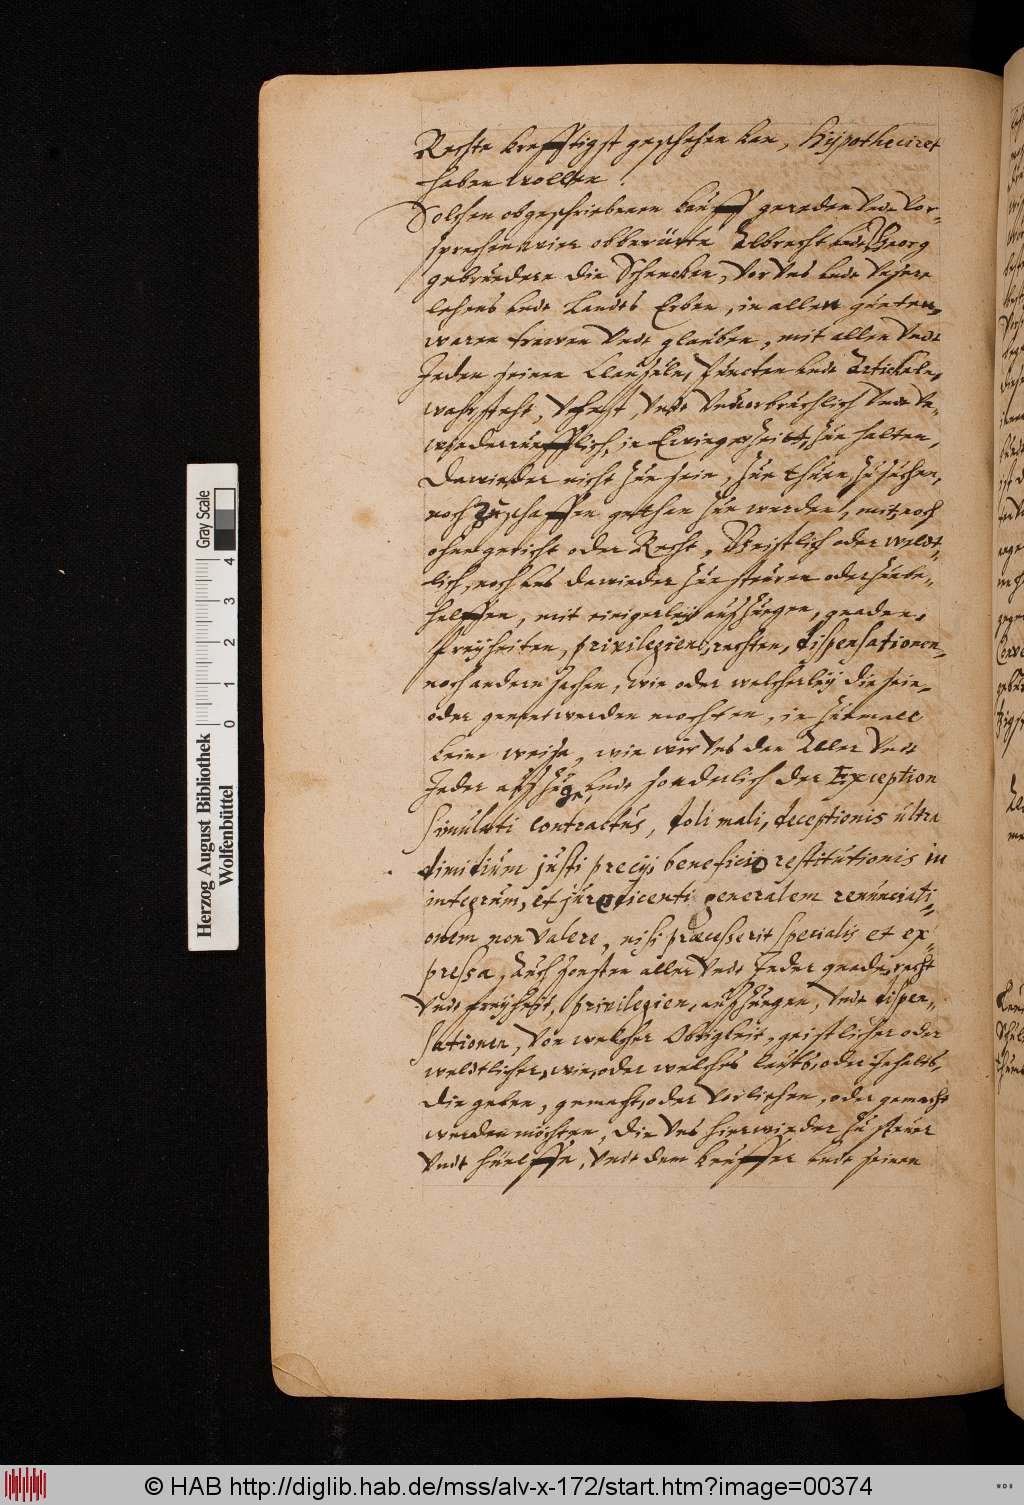 Rechte krefftigst geschehen kan, Hypotheciret
haben wollen.
Solchen obgeschriebenen kauff gereden Vndt Vor-
sprechen wier obberürte Albrecht vndt Georg
gebruedere die Schencken, Vor Vns vndt Vnsere
lehens vndt Landts Erben, in allen gueten
waren trewen Vndt glauben, mit allen Vndt
Jeden seinen Clausuln, Puncten vndt Artickeln,
wahr, steht, Vhest, Vndt Vnuerbruchlich Vndt Vn-
wiederruefflich, in Ewiger Zeit zue halten,
Dawieder nicht zue sein, zue thuen, zu suchen,
noch zu schaffen gethan zue werden, mit noch
ohne gericht oder Recht, Geistlich oder weldt-
lich, noch Vns dawieder zue steuren oder zue be-
helffen, mit einigerley auszuegen, gnaden,
freyheiten, privilegien, rechten, dispensationen,
noch andern sachen, wie oder welcherley die sein,
oder genent werden mochten, in zuemall
keine weise, wie wir Vns den Aller Vndt
Jeder auszüge, vndt sonderlich der Exception
Simulati contractus, doli mali, deceptionis ultra
dimidium justi precij, beneficio restitutionis in
integrum, et juri dicenti generalem renunciati-
onem non valere, nisi præcesserit specialis et ex-
pressa, Auch sonsten aller Vndt Jeder gnade, recht
Vndt freyheit, privilegien, auszuegen, Vndt dispen-
sationen, Von welcher Obrigkeit, geistlicher oder
weldtlicher, wie, oder welches lauts, oder Inhalts,
die geben, gemacht, oder Vorliehen, oder gemacht
werden möchten, die Vns hierwieder zu steuer
Vndt hüelffe, Vndt dem keuffer vndt seinen
Herzog August Bibliothek
Wolfenbüttel
0 1 2 3 4
Gray Scale
© HAB http://diglib.hab.de/mss/alv-x-172/start.htm?image=00374